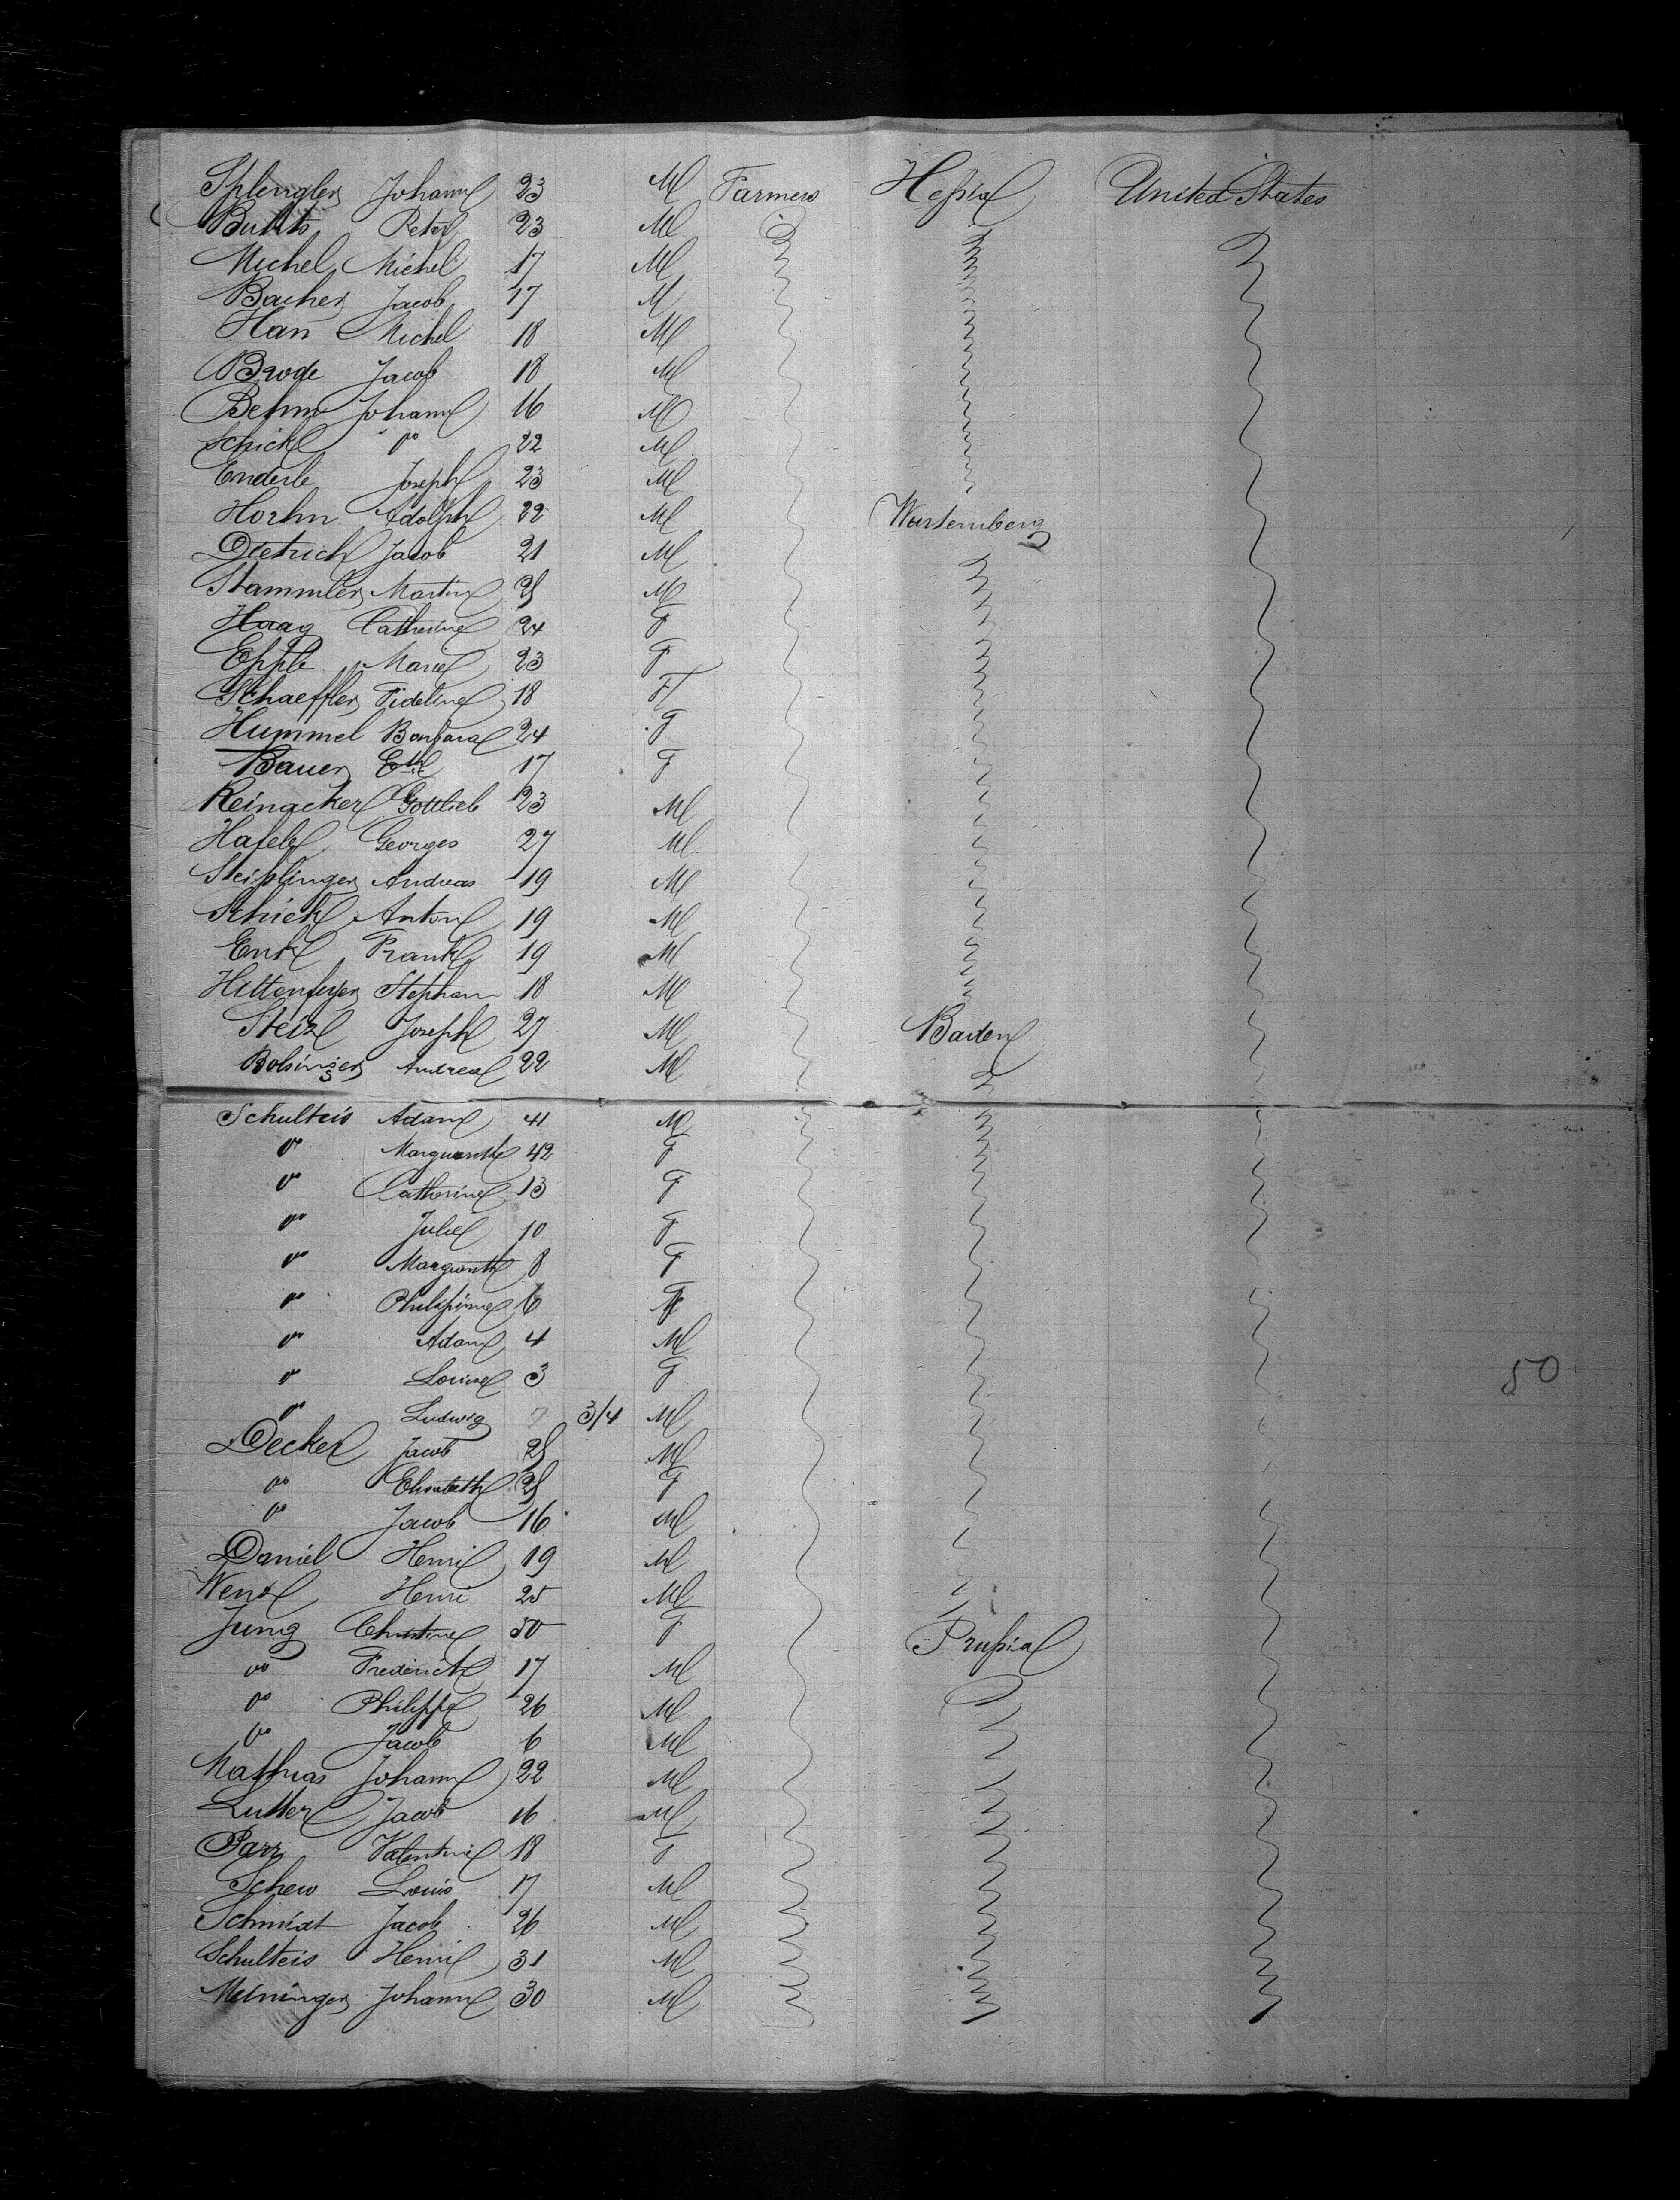 Splengler Johann 23 M Farmers Hessia United States
Butts Peter 23 M
Michel Michel 17 M
Bacher Jacob 17 M
Han Michel 18 M
Brode Jacob 18 M
Behm Johann 16 M
Schick do 22 M
Enderle Joseph 23 M
Horhn Adolph 22 M Wurtemberg
Dietrich Jacob 21 M
Stammler Martin 25 M
Haag Catherine 24 F
Epple Marie 23 F
Schaeffler Fideline 18 F
Hummel Barbara 24 F
Bauer 17 F
Reinacker Gottlieb 23 M
Hafele Georges 27 M
Steislinger Andreas 19 M
Schick Anton 19 M
Enk Frank 19 M
Stephan 18 M
Steiz Joseph 27 M Baden
Bolsinger Andrea 22 M
Schulteis Adam 41 M
do Marguerithe 42 F
do Catherine 13 F
do Julie 10 F
do Marguerithe 8 F
do Philippine 6 F
do Adam 4 M
do Louise 3 F
do Ludwig 3/4 M
Decker Jacob 25 M
do Elisabeth 25 F
do Jacob 16 M
Daniel Henri 19 M
Henri 25 M
Jung Christine 50 F Prussia
do Frederick 17 M
do Philippe 26 M
do Jacob 6 M
Mathias Johann 22 M
Lutter Jacob 16 M
Parr Valentine 18 F
Schew Louis 17 M
Schmidt Jacob 26 M
Schulteis Henri 31 M
Meininger Johann 30 M
50